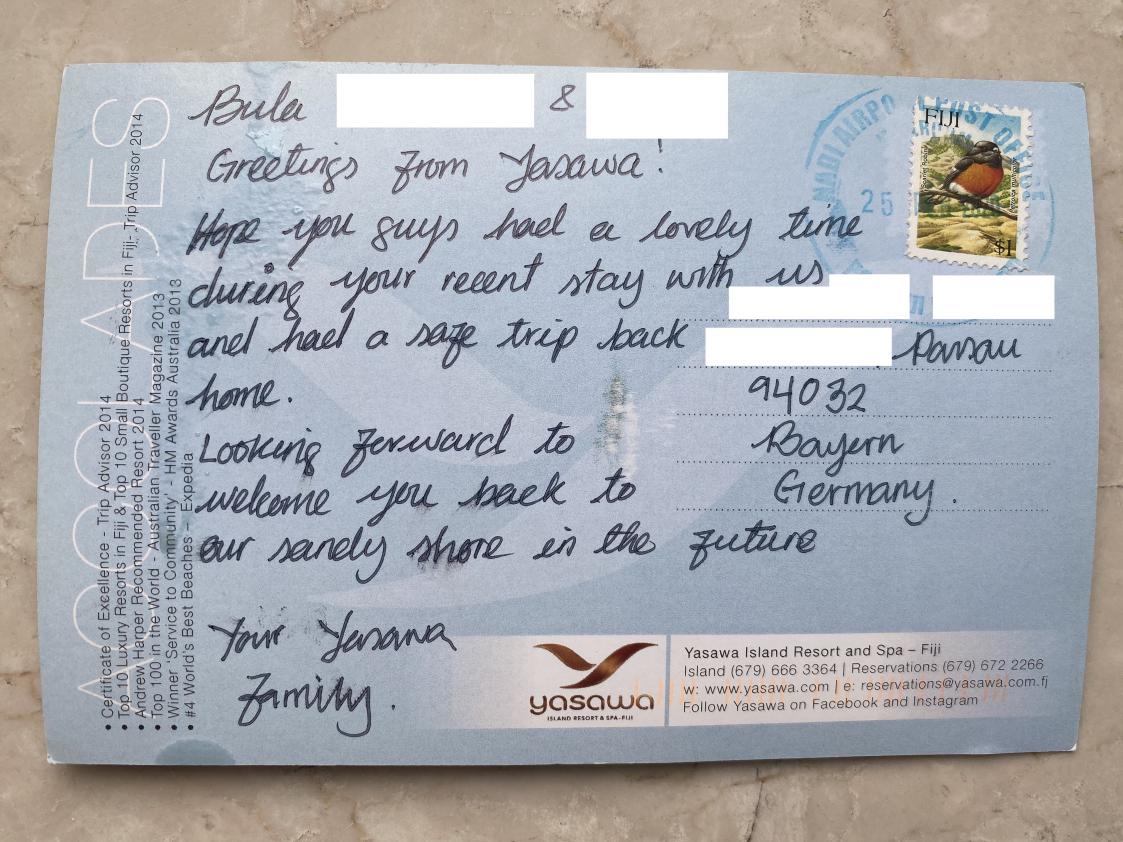 Bula &
Greetings from Yasawa!
Hope you guys had a lovely time
during your recent stay with us
and had a safe trip back
home.
Looking forward to
welcome you back to
our sandy shore in the future
Your Yasawa
Family.
FIJI
$1
NADI AIRPORT POST OFFICE
25
Passau
94032
Bayern
Germany.
ACCOLADES
• Certificate of Excellence - Trip Advisor 2014
• Top 10 Luxury Resorts in Fiji & Top 10 Small Boutique Resorts in Fiji - Trip Advisor 2014
• Andrew Harper Recommended Resort 2014
• Top 100 in the World - Australian Traveller Magazine 2013
• Winner 'Service to Community' - HM Awards Australia 2013
• #4 World's Best Beaches - Expedia
yasawa
ISLAND RESORT & SPA-FIJI
Yasawa Island Resort and Spa – Fiji
Island (679) 666 3364 | Reservations (679) 672 2266
w: www.yasawa.com | e: reservations@yasawa.com.fj
Follow Yasawa on Facebook and Instagram